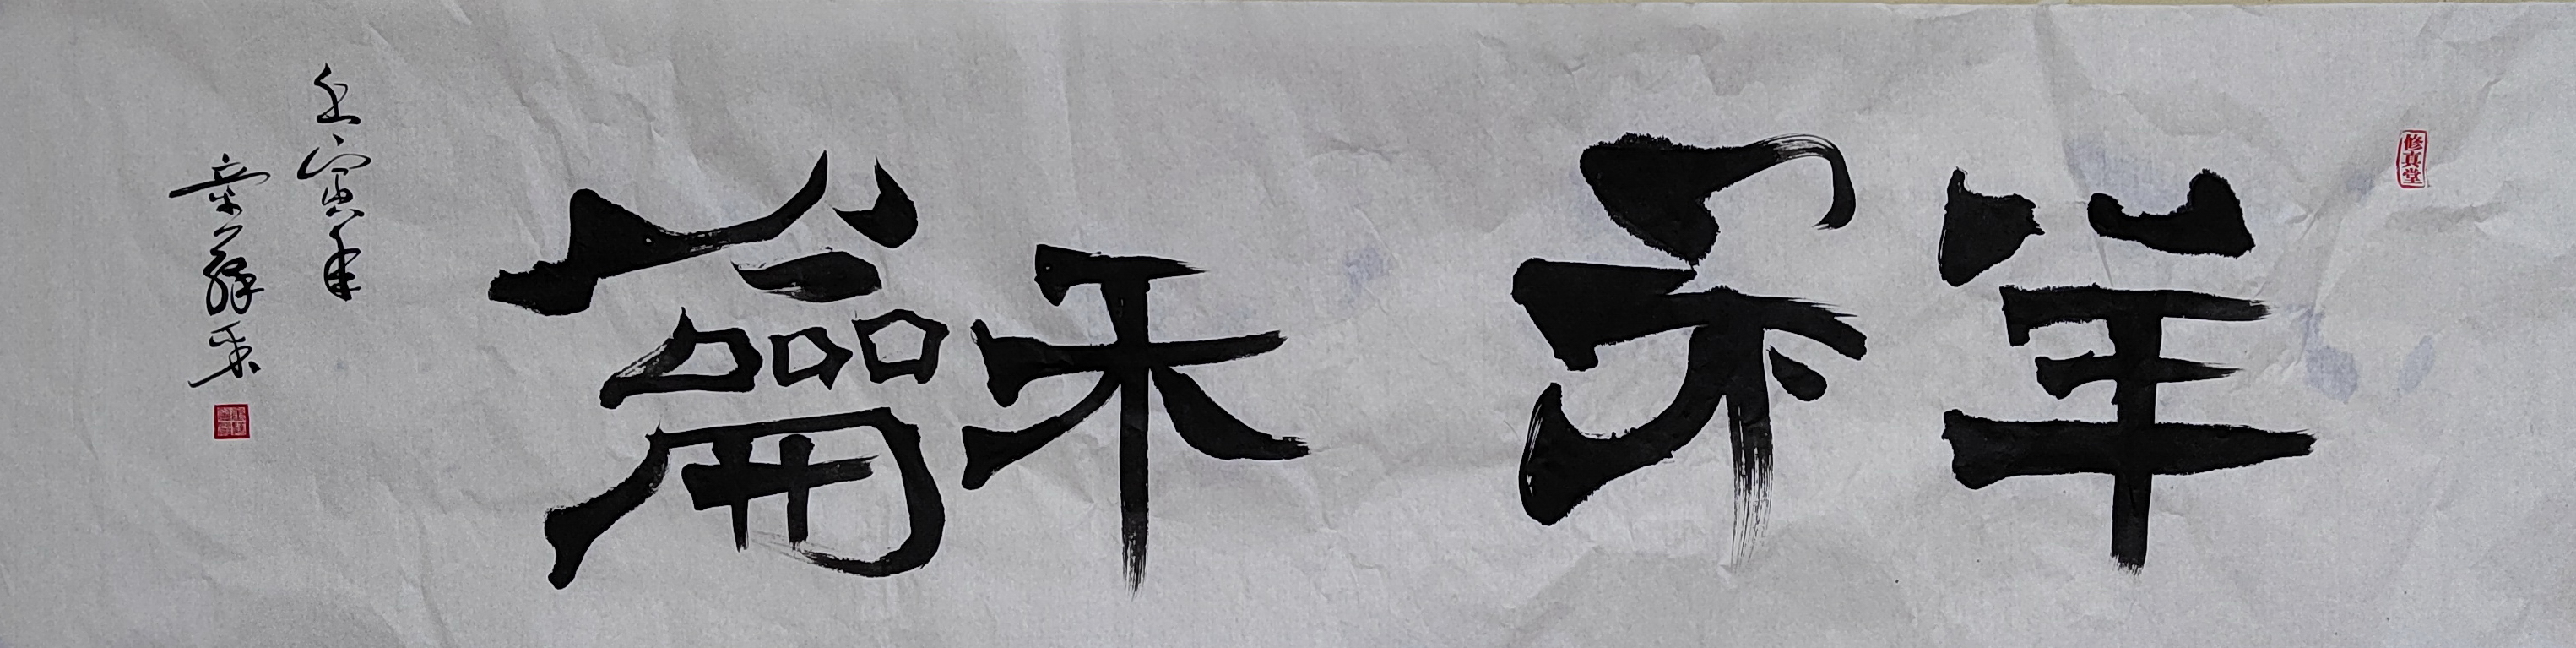 修真堂
祥龢
壬寅年